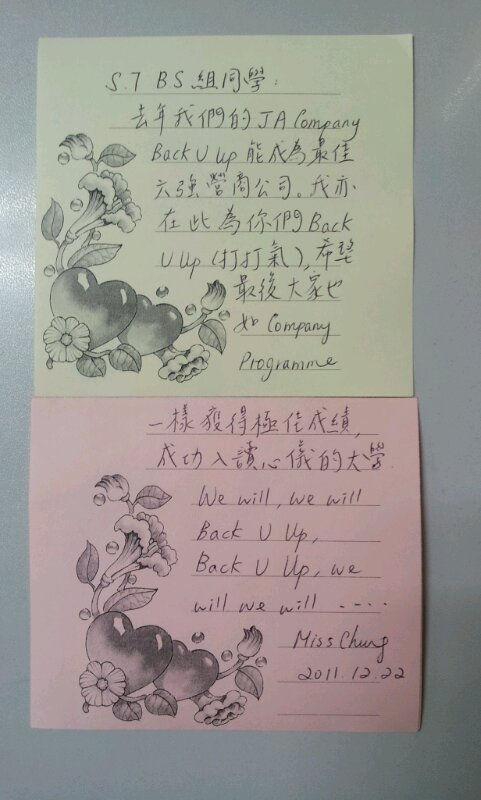 S.7 BS 組同學:
去年我們的 JA Company
Back U Up 能成為最佳
六強營商公司。我亦
在此為你們 Back
U Up (打打氣), 希望
最後大家也
如 Company
Programme
一樣獲得極佳成績,
成功入讀心儀的大學.
We will, we will
Back U Up,
Back U Up, we
will we will ....
Miss Chung
2011.12.22